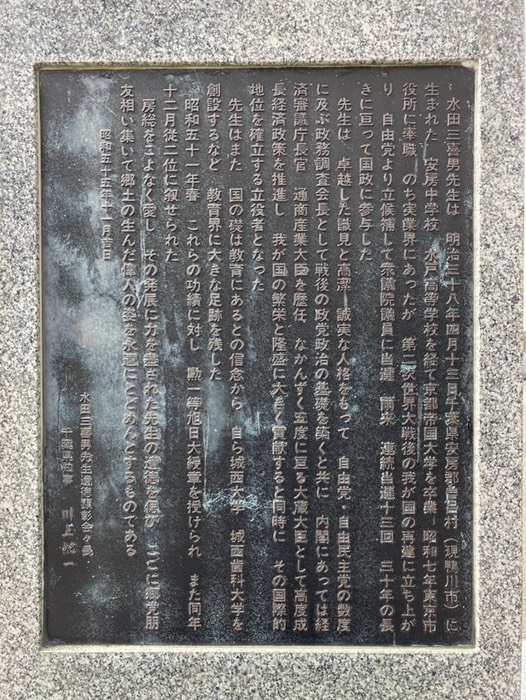 水田三喜男先生は 明治三十八年四月十三日千葉県安房郡曽呂村（現鴨川市）に
生まれた 安房中学校 水戸高等学校を経て京都帝国大学を卒業 昭和七年東京市
役所に奉職 のち実業界にあったが 第二次世界大戦後の我が国の再建に立ち上が
り 自由党より立候補して衆議院議員に当選 爾来 連続当選十三回 三十年の長
きに亘って国政に参与した
先生は 卓越した識見と高潔 誠実な人格をもって 自由党・自由民主党の数度
に及ぶ政務調査会長として戦後の政党政治の基礎を築くと共に 内閣にあっては経
済審議庁長官 通商産業大臣を歴任 なかんずく五度に亘る大蔵大臣として高度成
長経済政策を推進し 我が国の繁栄と隆盛に大きく貢献すると同時に その国際的
地位を確立する立役者となった
先生はまた 国の礎は教育にあるとの信念から 自ら城西大学 城西歯科大学を
創設するなど 教育界に大きな足跡を残した
昭和五十一年春 これらの功績に対し 勲一等旭日大綬章を授けられ また同年
十二月従二位に叙せられた
房総をこよなく愛し その発展に力を尽された先生の遺徳を偲び ここに郷党朋
友相い集いて郷土の生んだ偉人の姿を永遠にとどめんとするものである
昭和五十五年十一月吉日
水田三喜男先生遺徳顕彰会々長
千葉県知事 川上紀一